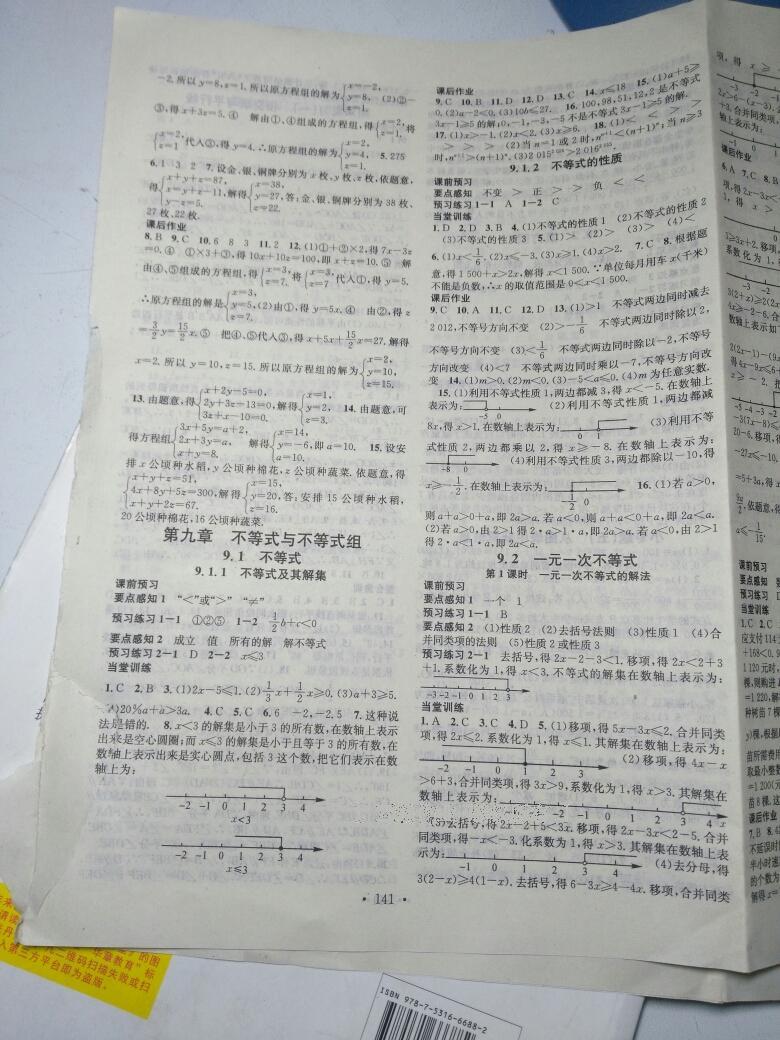 -2. 所以 y=8, z=1. 所以原方程组的解为 { x=-2, y=8, z=1. (2)②-
③,得 x+3z=5.④ 解由①,④组成的方程组,得 { x=2, z=1. 将
{ x=2, z=1 代入③,得 y=4. ∴原方程组的解为 { x=2, y=4, z=1. 5.275
6.1 3 2 7.设金、银、铜牌分别为 x 枚、y 枚、z 枚,依题意,
得 { x+y+z=87, x=y+z-11, y-z=5. 解得 { x=38, y=27, z=22. 答:金、银、铜牌分别为 38 枚、
27 枚、22 枚.
课后作业
8.B 9.C 10.6 8 3 11.2 12.(1)①+②×2,得 7x-3z
=0.④ ①×3+③,得 10x+10z=100,即 x+z=10.⑤ 解
由④、⑤组成的方程组,得 { x=3, z=7. 将 { x=3, z=7 代入①,得 y=5.
∴原方程组的解是 { x=3, y=5, z=7. (2)由①,得 y=5x.④ 由②,得 z
=3/2 y=15/2 x.⑤ 把④、⑤代入③,得 x+5x+15/2 x=27. 解得
x=2. 所以 y=10, z=15. 所以原方程组的解为 { x=2, y=10, z=15.
13.由题意,得 { x+2y-5=0, 2y+3z-13=0, 3z+x-10=0. 解得 { x=1, y=2, z=3. 14.由题意,可
得方程组 { 3x+5y=a+2, 2x+3y=a, x+y=8. 解得 { x=14, y=-6, a=10. 即 a=10. 15.设安
排 x 公顷种水稻,y 公顷种棉花,z 公顷种蔬菜.依题意,得
{ x+y+z=51, 4x+8y+5z=300, x+y+2z=67. 解得 { x=15, y=20, z=16. 答:安排 15 公顷种水稻,
20 公顷种棉花,16 公顷种蔬菜.
第九章 不等式与不等式组
9.1 不等式
9.1.1 不等式及其解集
课前预习
要点感知 1 “<”或“>” “≠”
预习练习 1-1 ①②⑤ 1-2 1/2 b+c<0
要点感知 2 成立 值 所有的解 解不等式
预习练习 2-1 D 2-2 x≤3
当堂训练
1.C 2.B 3.(1)2x-5≤1.(2)1/3 x+1/2 x≥0.(3)a+3≥5.
20%a+a>3a. 4.C 5.C 6.6 -2,-2.5 7.这种说
法是错的. 8.x<3 的解集是小于 3 的所有数,在数轴上表示
出来是空心圆圈;而 x≤3 的解集是小于且等于 3 的所有数,在
数轴上表示出来是实心圆点,包括 3 这个数,把它们表示在数
轴上为:
-2 -1 0 1 2 3 4
x<3
-2 -1 0 1 2 3 4
x≤3
课后作业
9.C 10.B 11.D 12.D 13.C 14.x≤18 15.(1)a+5≥
0.(2)a-2<0.(3)10b≤27. 16.100,98,51,12,2 是不等式
3x-1≥5 的解;0,-1,-3,-5 不是不等式 3x-1≥5 的解.
17.(1)x>-1.(2)x<2.(3)x≥6. 18.(1)< < >
> > (2)当 n=1 或 2 时,nⁿ⁺¹<(n+1)ⁿ;当 n≥3
时,nⁿ⁺¹>(n+1)ⁿ.
9.1.2 不等式的性质
课前预习
要点感知 不变 > 正 > > 负 < <
预习练习 1-1 A 1-2 C
当堂训练
1.D 2.D 3.B 4.(1)不等式的性质 1 (2)不等式的性质 2
(3)不等式的性质 3 5.(1)> (2)> (3)> (4)<
6.(1)x<1/6.(2)x≤-3.(3)x≥1.(4)x>2. 7.C 8.根据题
意,得 1 500+x>2x,解得 x<1 500. ∵单位每月用车 x(千米)
不能是负数,∴x 的取值范围是 0<x<1 500.
课后作业
9.C 10.B 11.A 12.D 13.(1)>1 不等式两边同时减去
2 012,不等号方向不变 (2)>-1/6 不等式两边同时除以 2,
不等号方向不变 (3)<1/6 不等式两边同时除以-2,不等号
方向改变 (4)<7 不等式两边同时乘以-7,不等号方向改
变 14.(1)m>0.(2)m<0.(3)-5<a≤0.(4)m 为任意实数.
15.(1)利用不等式性质 1,两边都减 3,得 x<-5.在数轴上
表示为: -5 0 (2)利用不等式性质 1,两边都减
8x,得 x>1.在数轴上表示为: 0 1 (3)利用不等
式性质 2,两边都乘以 2,得 x≥-8.在数轴上表示为:
-8 0 (4)利用不等式性质 3,两边都除以-10,得
x≥-1/2.在数轴上表示为: -1/2 0 16.(1)若 a>0,
则 a+a>0+a,即 2a>a.若 a<0,则 a+a<0+a,即 2a<a.
(2)若 a>0,由 2>1 得 2·a>1·a,即 2a>a.若 a<0,由 2>1
得 2·a<1·a,即 2a<a.
9.2 一元一次不等式
第 1 课时 一元一次不等式的解法
课前预习
要点感知 1 一个 1
预习练习 1-1 B
要点感知 2 (1)性质 2 (2)去括号法则 (3)性质 1 (4)合
并同类项的法则 (5)性质 2 或性质 3
预习练习 2-1 去括号,得 2x-2-3<1.移项,得 2x<2+3
+1.系数化为 1,得 x<3.不等式的解集在数轴上表示为:
-3-2-1 0 1 2 3
当堂训练
1.A 2.C 3.C 4.D 5.(1)移项,得 5x-3x≤2.合并同类
项,得 2x≤2.系数化为 1,得 x≤1.其解集在数轴上表示为:
-2 -1 0 1 2 3 (2)移项,得 4x-x
>6+3,合并同类项,得 3x>9,系数化为 1,得 x>3.其解集在
数轴上表示为: -3 -2 -1 0 1 2 3 4 x
(3)去括号,得 2x-2+5<3x.移项,得 2x-3x<2-5.合并
同类项,得-x<-3.化系数为 1,得 x>3.其解集在数轴上表
示为: -2 -1 0 1 2 3 4 (4)去分母,得
3(2-x)≥4(1-x).去括号,得 6-3x≥4-4x.移项,合并同类
· 141 ·
ISBN 978-7-5316-6688-2
人第三方平台即为盗版.